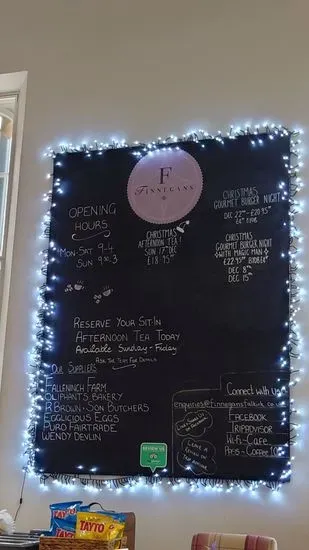 F
FINNEGANS
OPENING
HOURS
MON-SAT 9-4
SUN 9:30-3
CHRISTMAS
AFTERNOON TEA!
SUN 17TH DEC
£18.95
CHRISTMAS
GOURMET BURGER NIGHT
DEC 22ND - £20.95
CHRISTMAS
GOURMET BURGER NIGHT
+ WITH MAGIC MAN
£22.95
DEC 8TH
DEC 15TH
RESERVE YOUR SIT-IN
AFTERNOON TEA TODAY
AVAILABLE SUNDAY-FRIDAY
ASK THE TEAM FOR DETAILS
OUR SUPPLIERS
FALLENINCH FARM
OLIPHANTS BAKERY
R BROWN + SON BUTCHERS
EGGLICIOUS EGGS
PURO FAIRTRADE
WENDY DEVLIN
CONNECT WITH US
FACEBOOK
TRIPADVISOR
WI-FI - CAFE
LEAVE A
REVIEW US
TAYTO
TAYTO